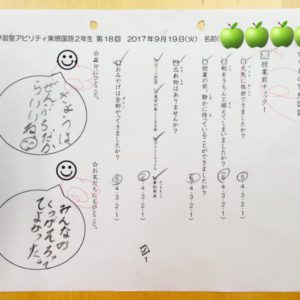 学習室アビリティ実感国語2年生 第18回 2017年9月19日(火) 名前(
☆授業前チェック!
✓元気にあいさつができましたか?
✓靴をきちんと揃えてしまいましたか?
✓授業の前、静かに待っていることができましたか?
✓忘れ物はありませんか?
✓おみやげは全部やってきましたか?
5・4・3・2・1
5・4・3・2・1
5・4・3・2・1
5・4・3・2・1
☆自分にひとこと。
きょうは
ぜんぶ5だか
らいいね
☆お友だちにもひとこと。
みんなの
くつがそろって
てよかった。